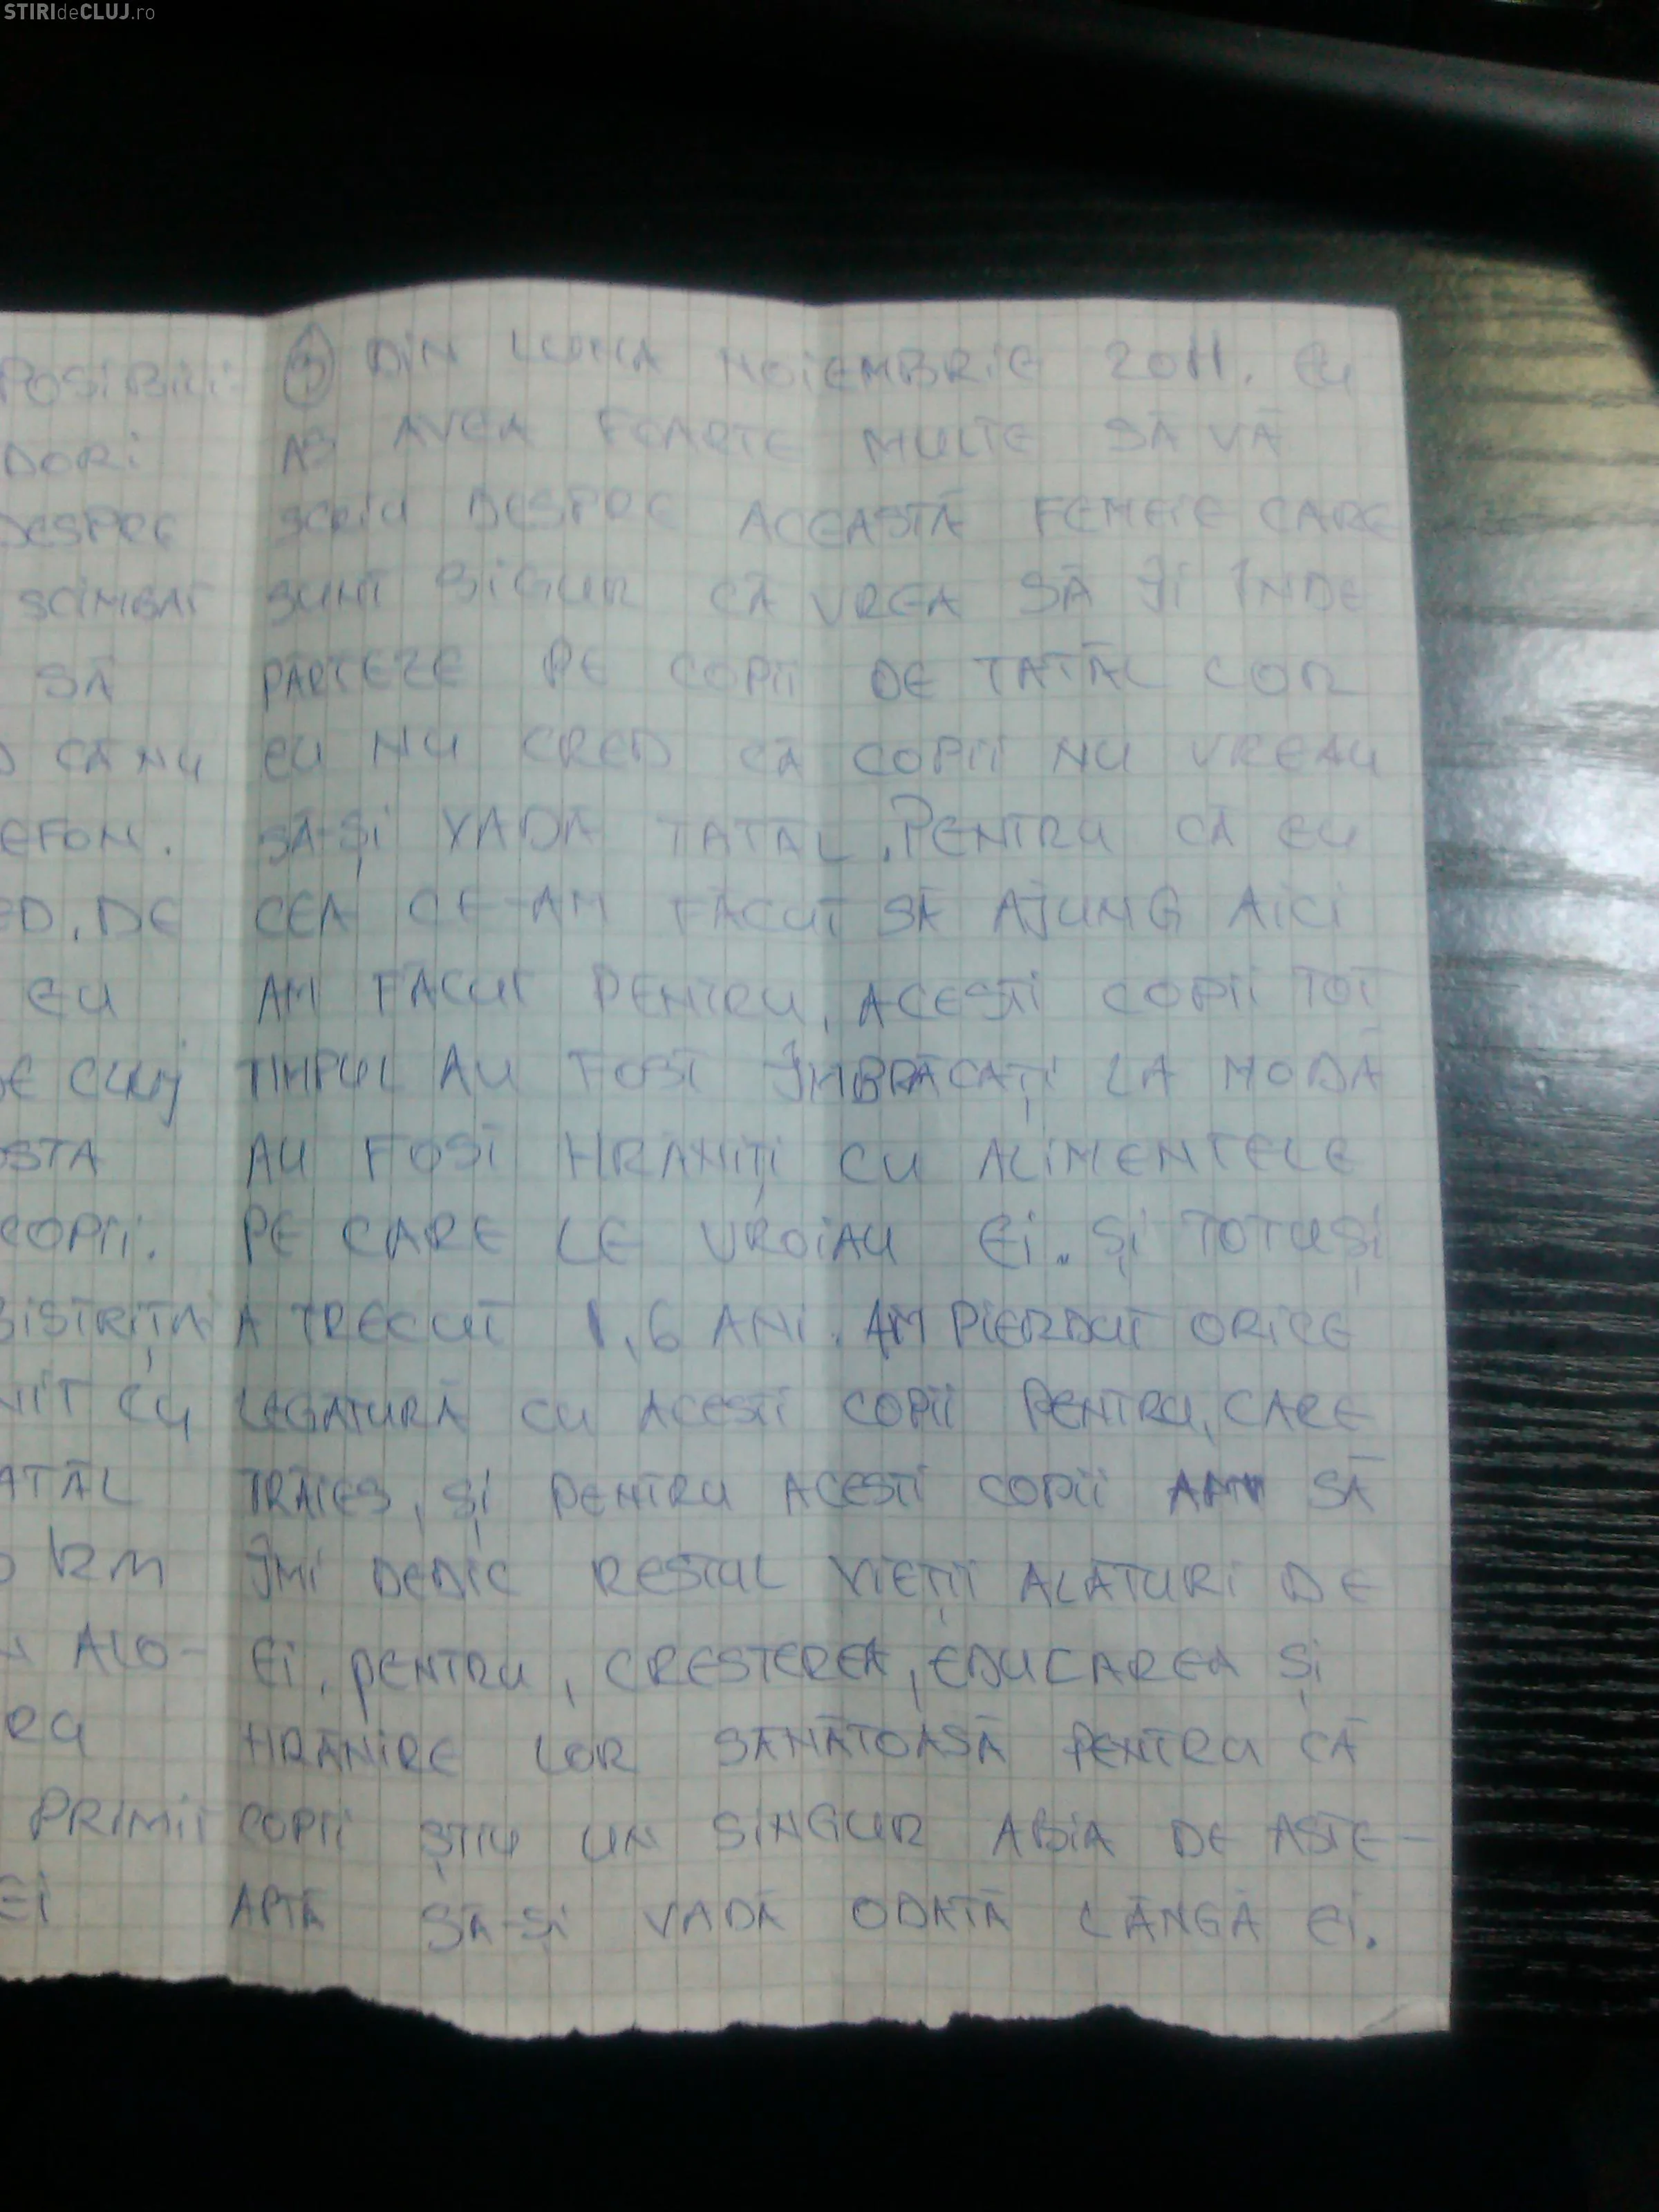 STIRIdeCLUJ.ro
POSIBILI-
DORI
DESPRE
SCIMBAT
SĂ
CĂ NU
EFON.
ED. DE
EU
DE CLUJ
OSTA
COPII.
BISTRIȚA
NIT CU
ATĂL
KM
ALO-
RU
PRIMIT
EI
3 DIN LUNA NOIEMBRIE 2011. EU
AS AVEA FOARTE MULTE SĂ VĂ
SCRIU DESPRE ACEASTĂ FEMEIE CARE
SUNT SIGUR CĂ VREA SĂ ÎI ÎNDE
PĂRTEZE PE COPII DE TATĂL LOR
EU NU CRED CĂ COPII NU VREAU
SĂ-ȘI VADĂ TATĂL. PENTRU CĂ EU
CEA CE-AM FĂCUT SĂ AJUNG AICI
AM FĂCUT PENTRU, ACESTI COPII TOT
TIMPUL AU FOST ÎMBRĂCAȚI LA MODĂ
AU FOST HRĂNIȚI CU ALIMENTELE
PE CARE LE VROIAU EI. ȘI TOTUȘI
A TRECUT 1,6 ANI. AM PIERDUT ORICE
LEGĂTURĂ CU ACESTI COPII PENTRU, CARE
TRĂIES, ȘI PENTRU ACESTI COPII AM SĂ
ÎMI DEDIC RESTUL VIEȚII ALĂTURI DE
EI, PENTRU, CRESTEREA, EDUCAREA ȘI
HRĂNIRE LOR SĂNĂTOASĂ PENTRU CĂ
COPII ȘTIU UN SINGUR ABIA DE ASTE-
APTĂ SĂ-ȘI VADĂ ODATĂ LÂNGĂ EI.